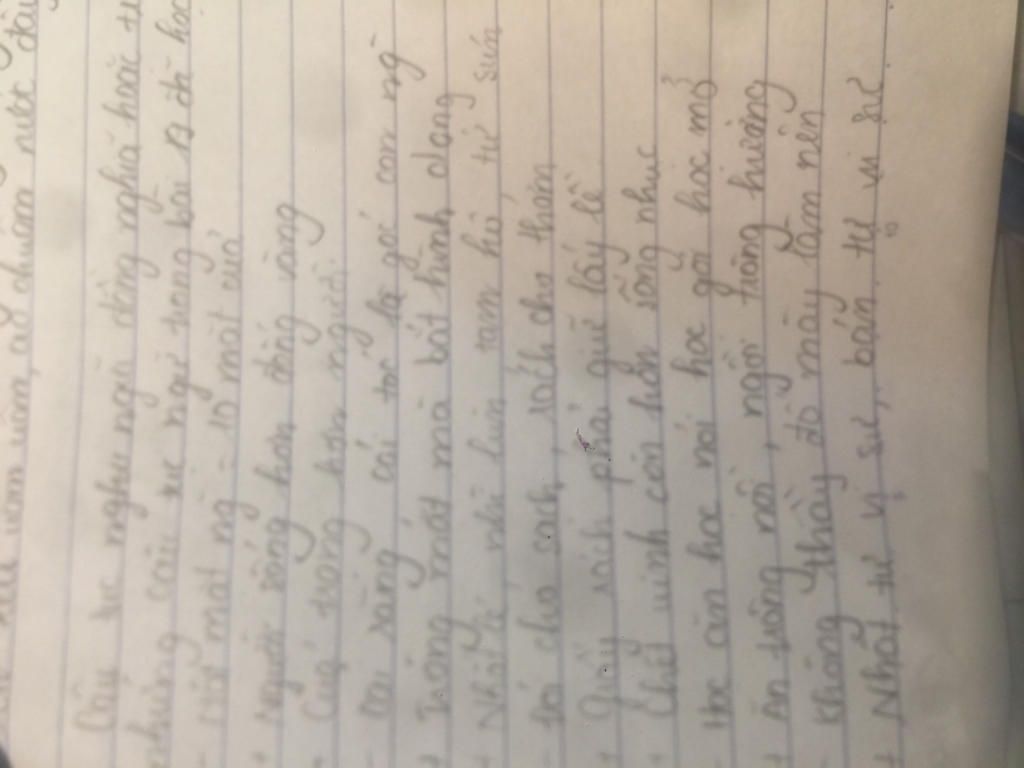 Câu tục ngữ nào đồng nghĩa hoặc
những câu tục ngữ trong bài đã học
- Một mặt ng = 10 mặt của
+ Người sống hơn đống vàng
+ Của trọng hơn người
- Cái răng cái tóc là góc con ng
+ Trông mặt mà bắt hình dong
+ Nhất lé, nhì lùn tam hô tứ sún
- Đói cho sạch, rách cho thơm
+ Giấy rách phải giữ lấy lề
+ Chết vinh còn hơn sống nhục
- Học ăn học nói học gói học mở
+ Ăn trông nồi, ngồi trông hướng
- Không thầy đố mày làm nên
+ Nhất tự vi sư, bán tự vi sư